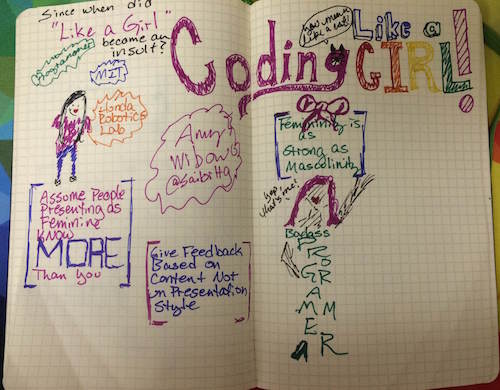 Since when did
"Like a Girl"
become an
insult?
Programmer
MIT
Honda
Robotics
Lab
Assume People
Presenting as
Feminine
Know
MORE
Than You
Amy
Wibowo
@sailorhg
Give Feedback
Based on
Content Not
on Presentation
Style
Coding
Like a
GIRL!
Femininity is
as
Strong as
Masculinity
that's me!
Badass
PROGRAMMER